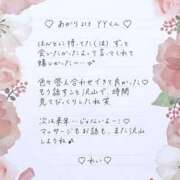 ♡ あかり 217 YYくん ♡
ほんとに待ってた(は)ずっと
会いたかったよ って言ってくれて
嬉しかったー♡
色々答え合わせできて良かった♡
もう話すこと沢山で、時間
見てびっくりしたね笑
次は来年…じゃないよー！♡
マッサージもお話も、また沢山
しようね♡
♡ れい ♡